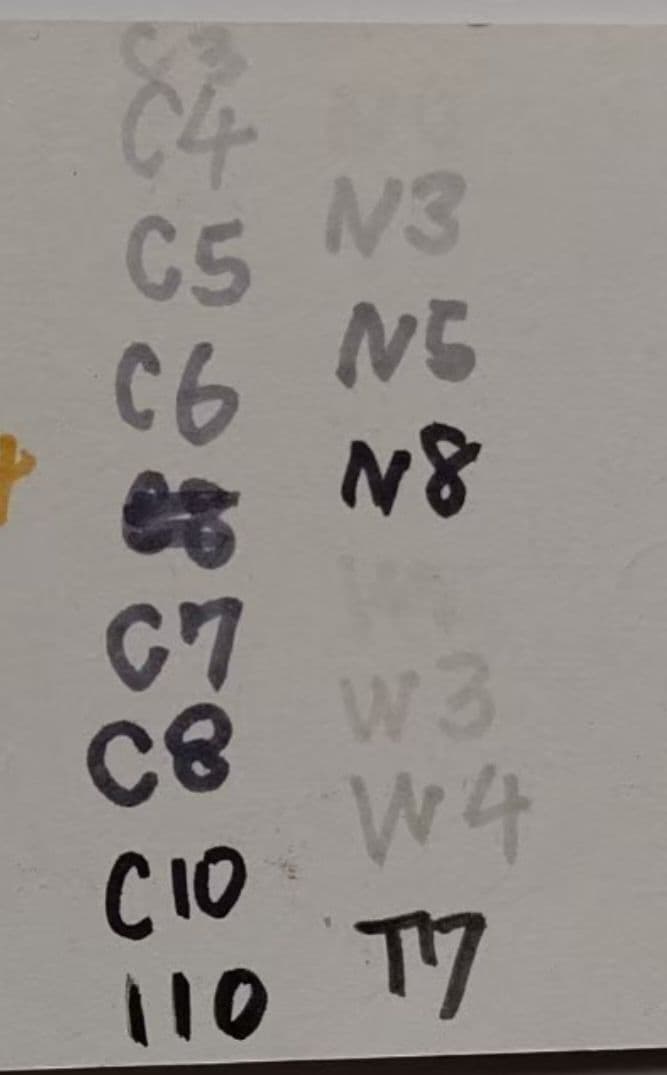 C3
C4
C5
C6
C7
C8
C10
110
N3
N5
N8
W3
W4
T7